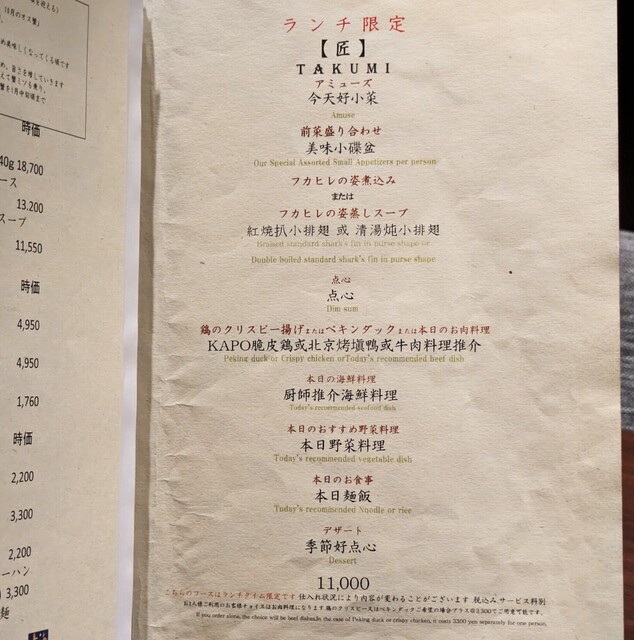 時価
40g 18,700
ース
13.200
スープ
11,550
時価
4,950
4,950
1,760
時価
2,200
3,300
2,200
ーハン
) 3,300
麺
ランチ限定
【匠】
TAKUMI
アミューズ
今天好小菜
Amuse
前菜盛り合わせ
美味小碟盆
Our Special Assorted Small Appetizers per person
フカヒレの姿煮込み
または
フカヒレの姿蒸しスープ
紅焼扒小排翅 或 清湯炖小排翅
Braised standard shark's fin in purse shape or
Double boiled standard shark's fin in purse shape
点心
点心
Dim sum
鶏のクリスピー揚げまたはペキンダックまたは本日のお肉料理
KAPO脆皮鶏或北京烤塡鴨或牛肉料理推介
Peking duck or Crispy chicken orToday's recommended beef dish
本日の海鮮料理
厨師推介海鮮料理
Today's recommended seafood dish
本日のおすすめ野菜料理
本日野菜料理
Today's recommended vegetable dish
本日のお食事
本日麺飯
Today's recommended Noodle or rice
デザート
季節好点心
Dessert
11,000
こちらのコースはランチタイム限定です 仕入れ状況により内容が変わることがございます 税込み,サービス料別
If you order alone,the choice will be beef dishes.In the case of Peking duck or crispy chicken, it costs 3300 yen separately for one person.